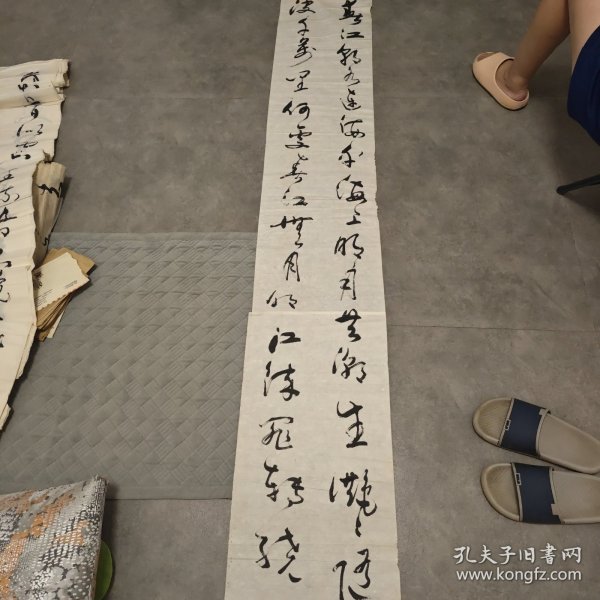 春江潮水连海平海上明月共潮生灩灩随
波千万里何处春江无月明江流宛转绕
孔夫子旧书网
www.kongfz.com